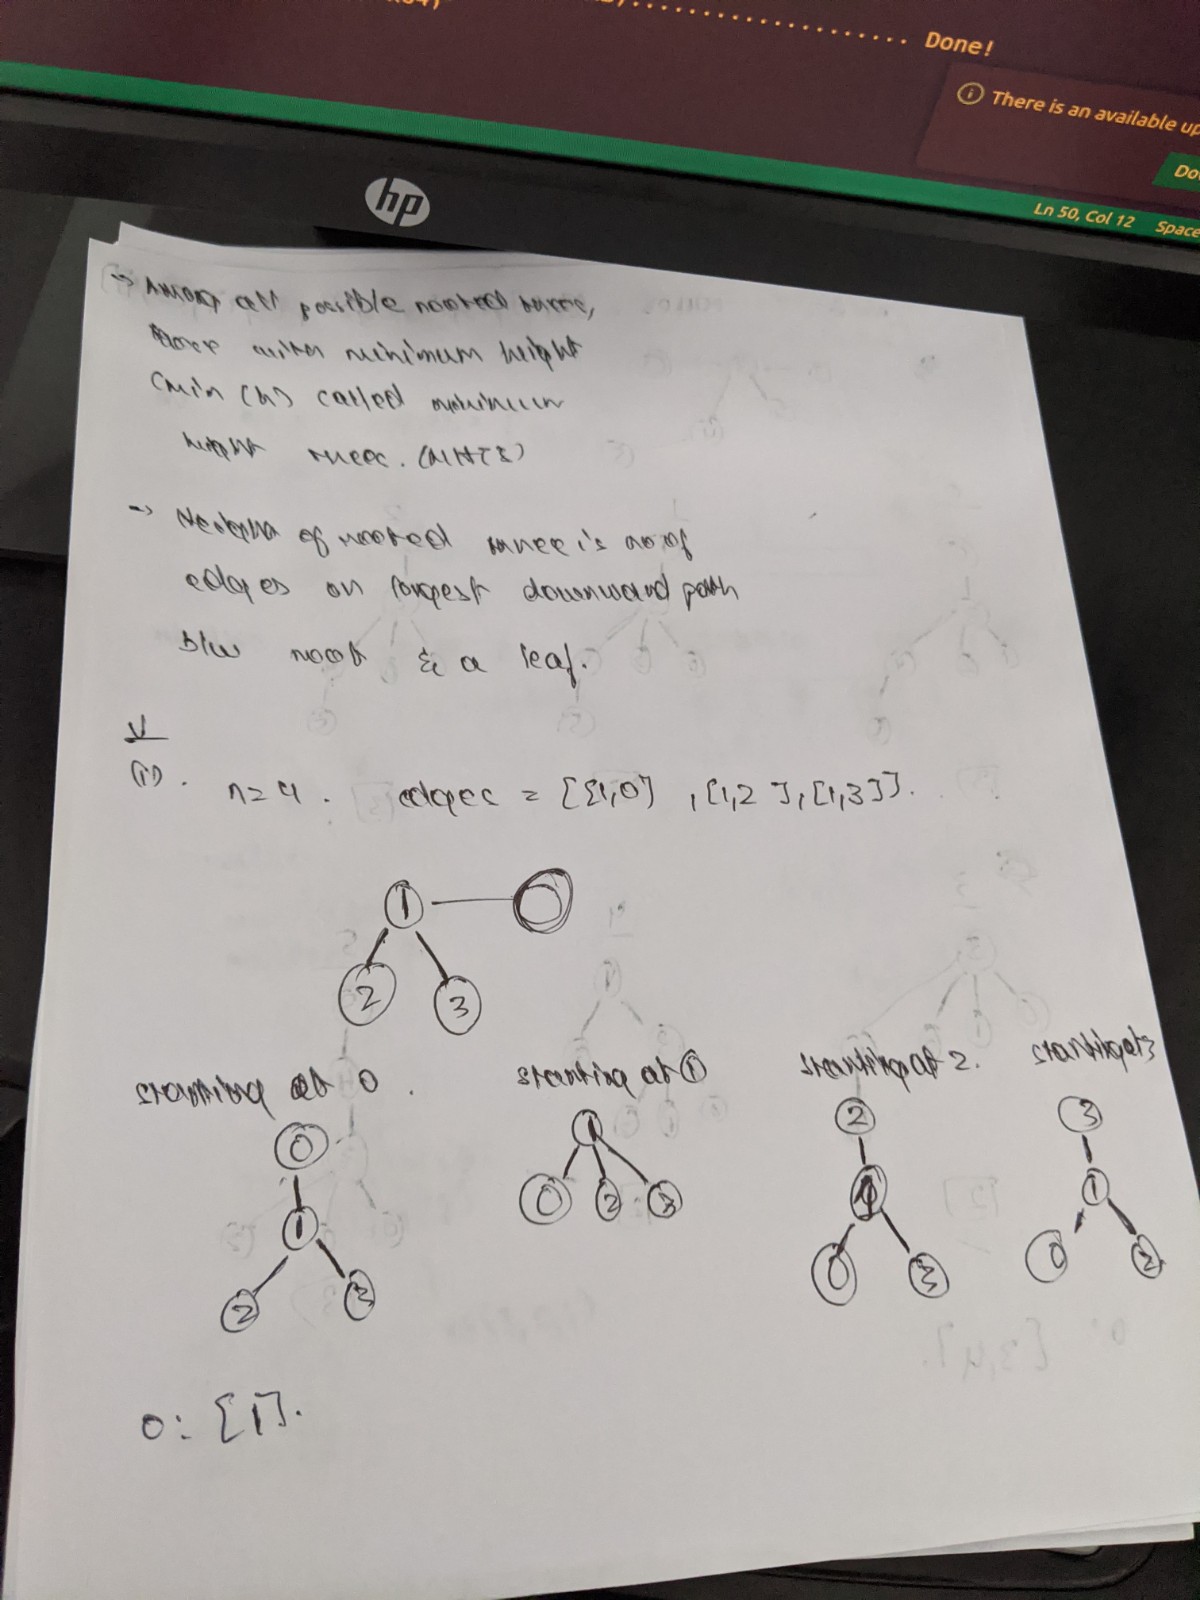 Done!
There is an available up
Do
Ln 50, Col 12 Space
hp
→ Among all possible rooted trees,
those with minimum height
(min(h)) called minimum
height trees. (MHTs)
→ Height of rooted tree is no of
edges on longest downward path
b/w root & a leaf.
(i). n=4. edges = [[1,0], [1,2], [1,3]].
1
2 3
starting at 0. starting at ① starting at 2. starting at 3
0 1 2 3
1 0 2 3 1 1
2 3 0 3 0 2
O: [1].